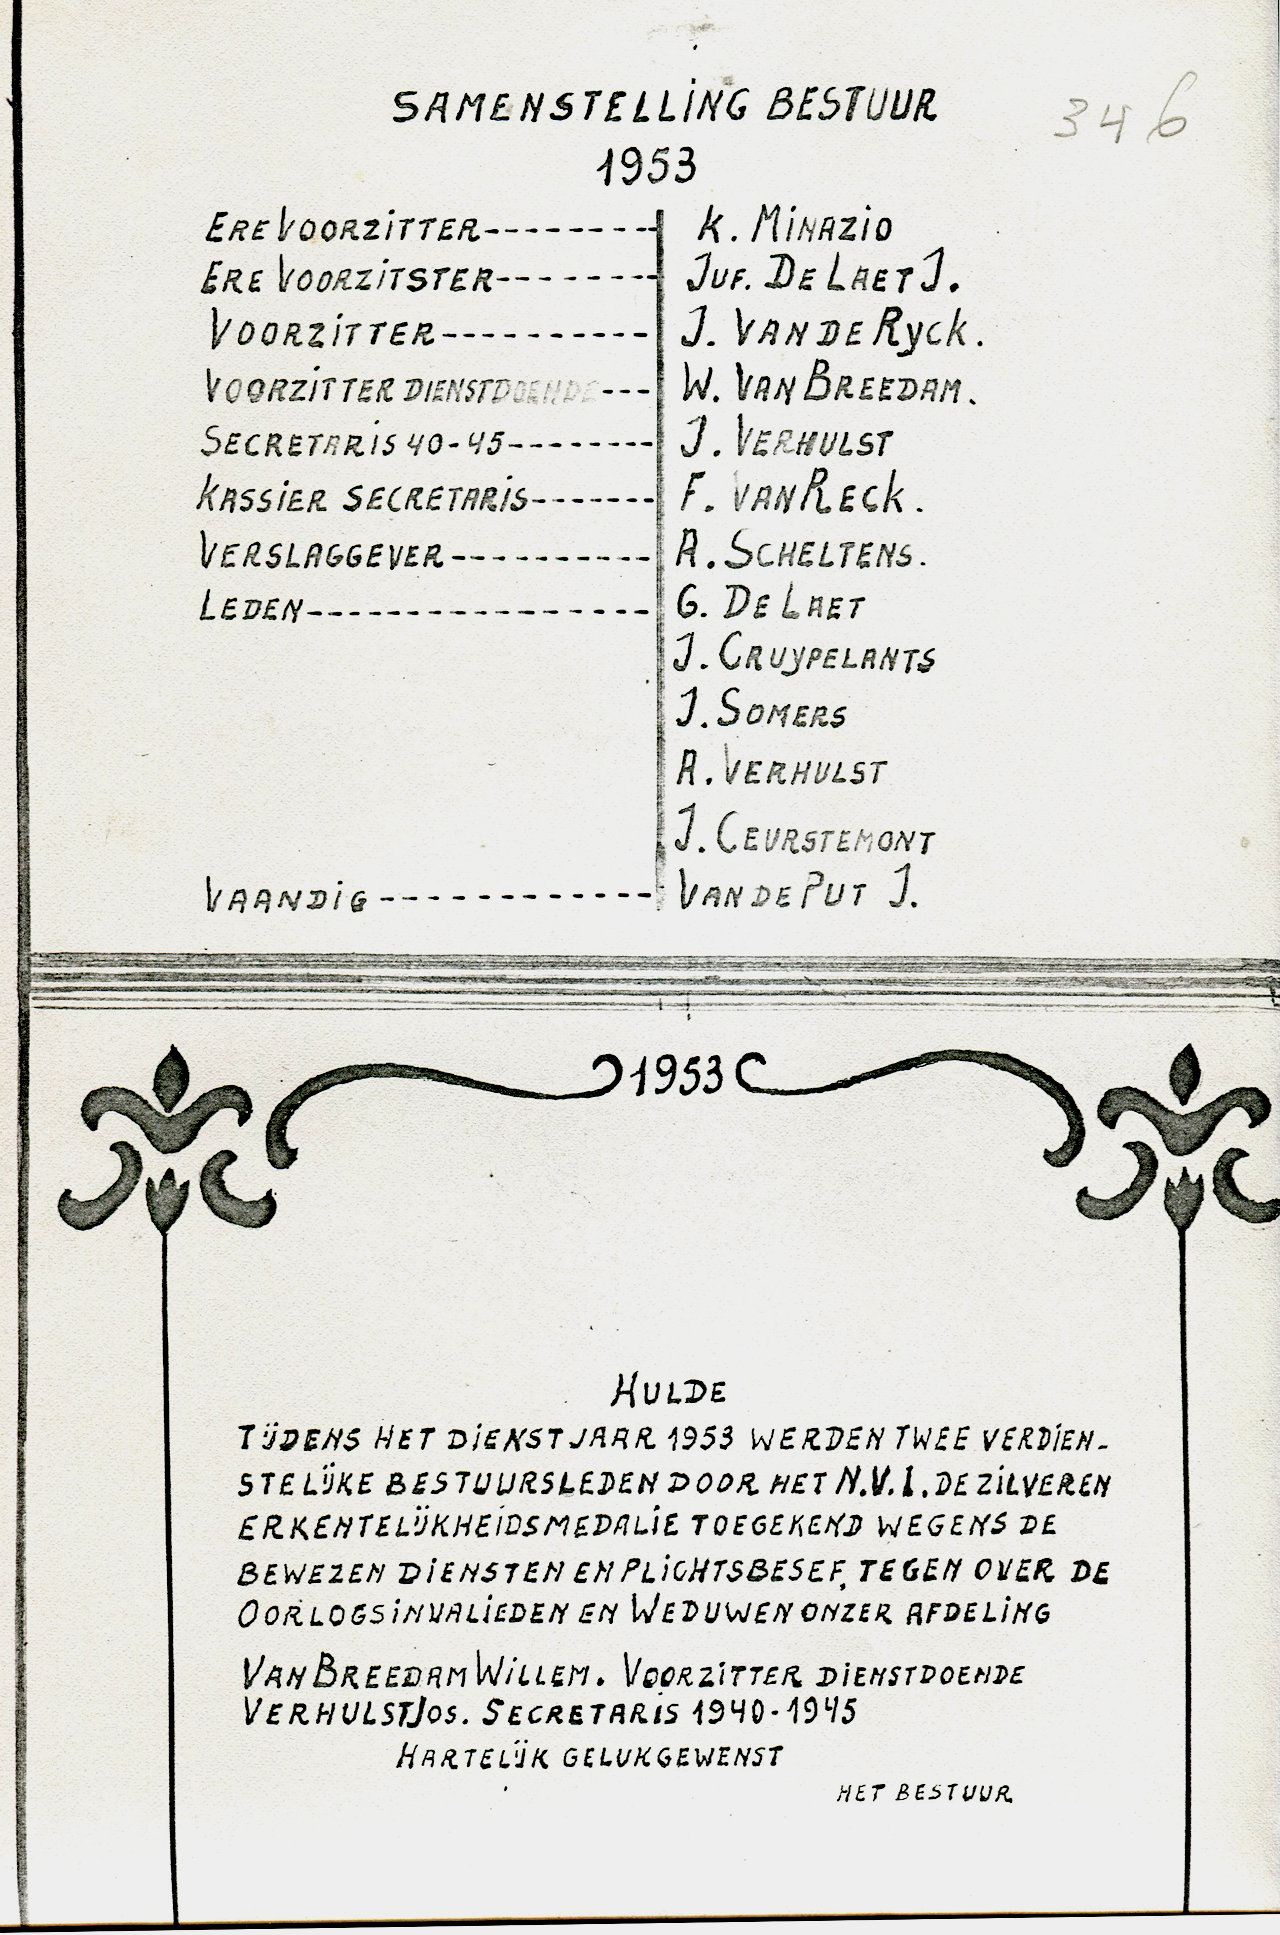 SAMENSTELLING BESTUUR
346
1953
ERE VOORZITTER--------- K. MINAZIO
ERE VOORZITSTER-------- JUF. DE LAET J.
VOORZITTER----------- J. VAN DE RYCK.
VOORZITTER DIENSTDOENDE--- W. VAN BREEDAM.
SECRETARIS 40-45--------- J. VERHULST
KASSIER SECRETARIS------- F. VAN RECK.
VERSLAGGEVER---------- A. SCHELTENS.
LEDEN----------------- G. DE LAET
J. CRUYPELANTS
J. SOMERS
A. VERHULST
J. CEURSTEMONT
VAANDIG ------------- VAN DE PUT J.
1953
HULDE
TIJDENS HET DIENSTJAAR 1953 WERDEN TWEE VERDIEN-
STELIJKE BESTUURSLEDEN DOOR HET N.V.I. DE ZILVEREN
ERKENTELIJKHEIDSMEDALIE TOEGEKEND WEGENS DE
BEWEZEN DIENSTEN EN PLICHTSBESEF, TEGEN OVER DE
OORLOGSINVALIEDEN EN WEDUWEN ONZER AFDELING
VAN BREEDAM WILLEM. VOORZITTER DIENSTDOENDE
VERHULST JOS. SECRETARIS 1940-1945
HARTELIJK GELUKGEWENST
HET BESTUUR